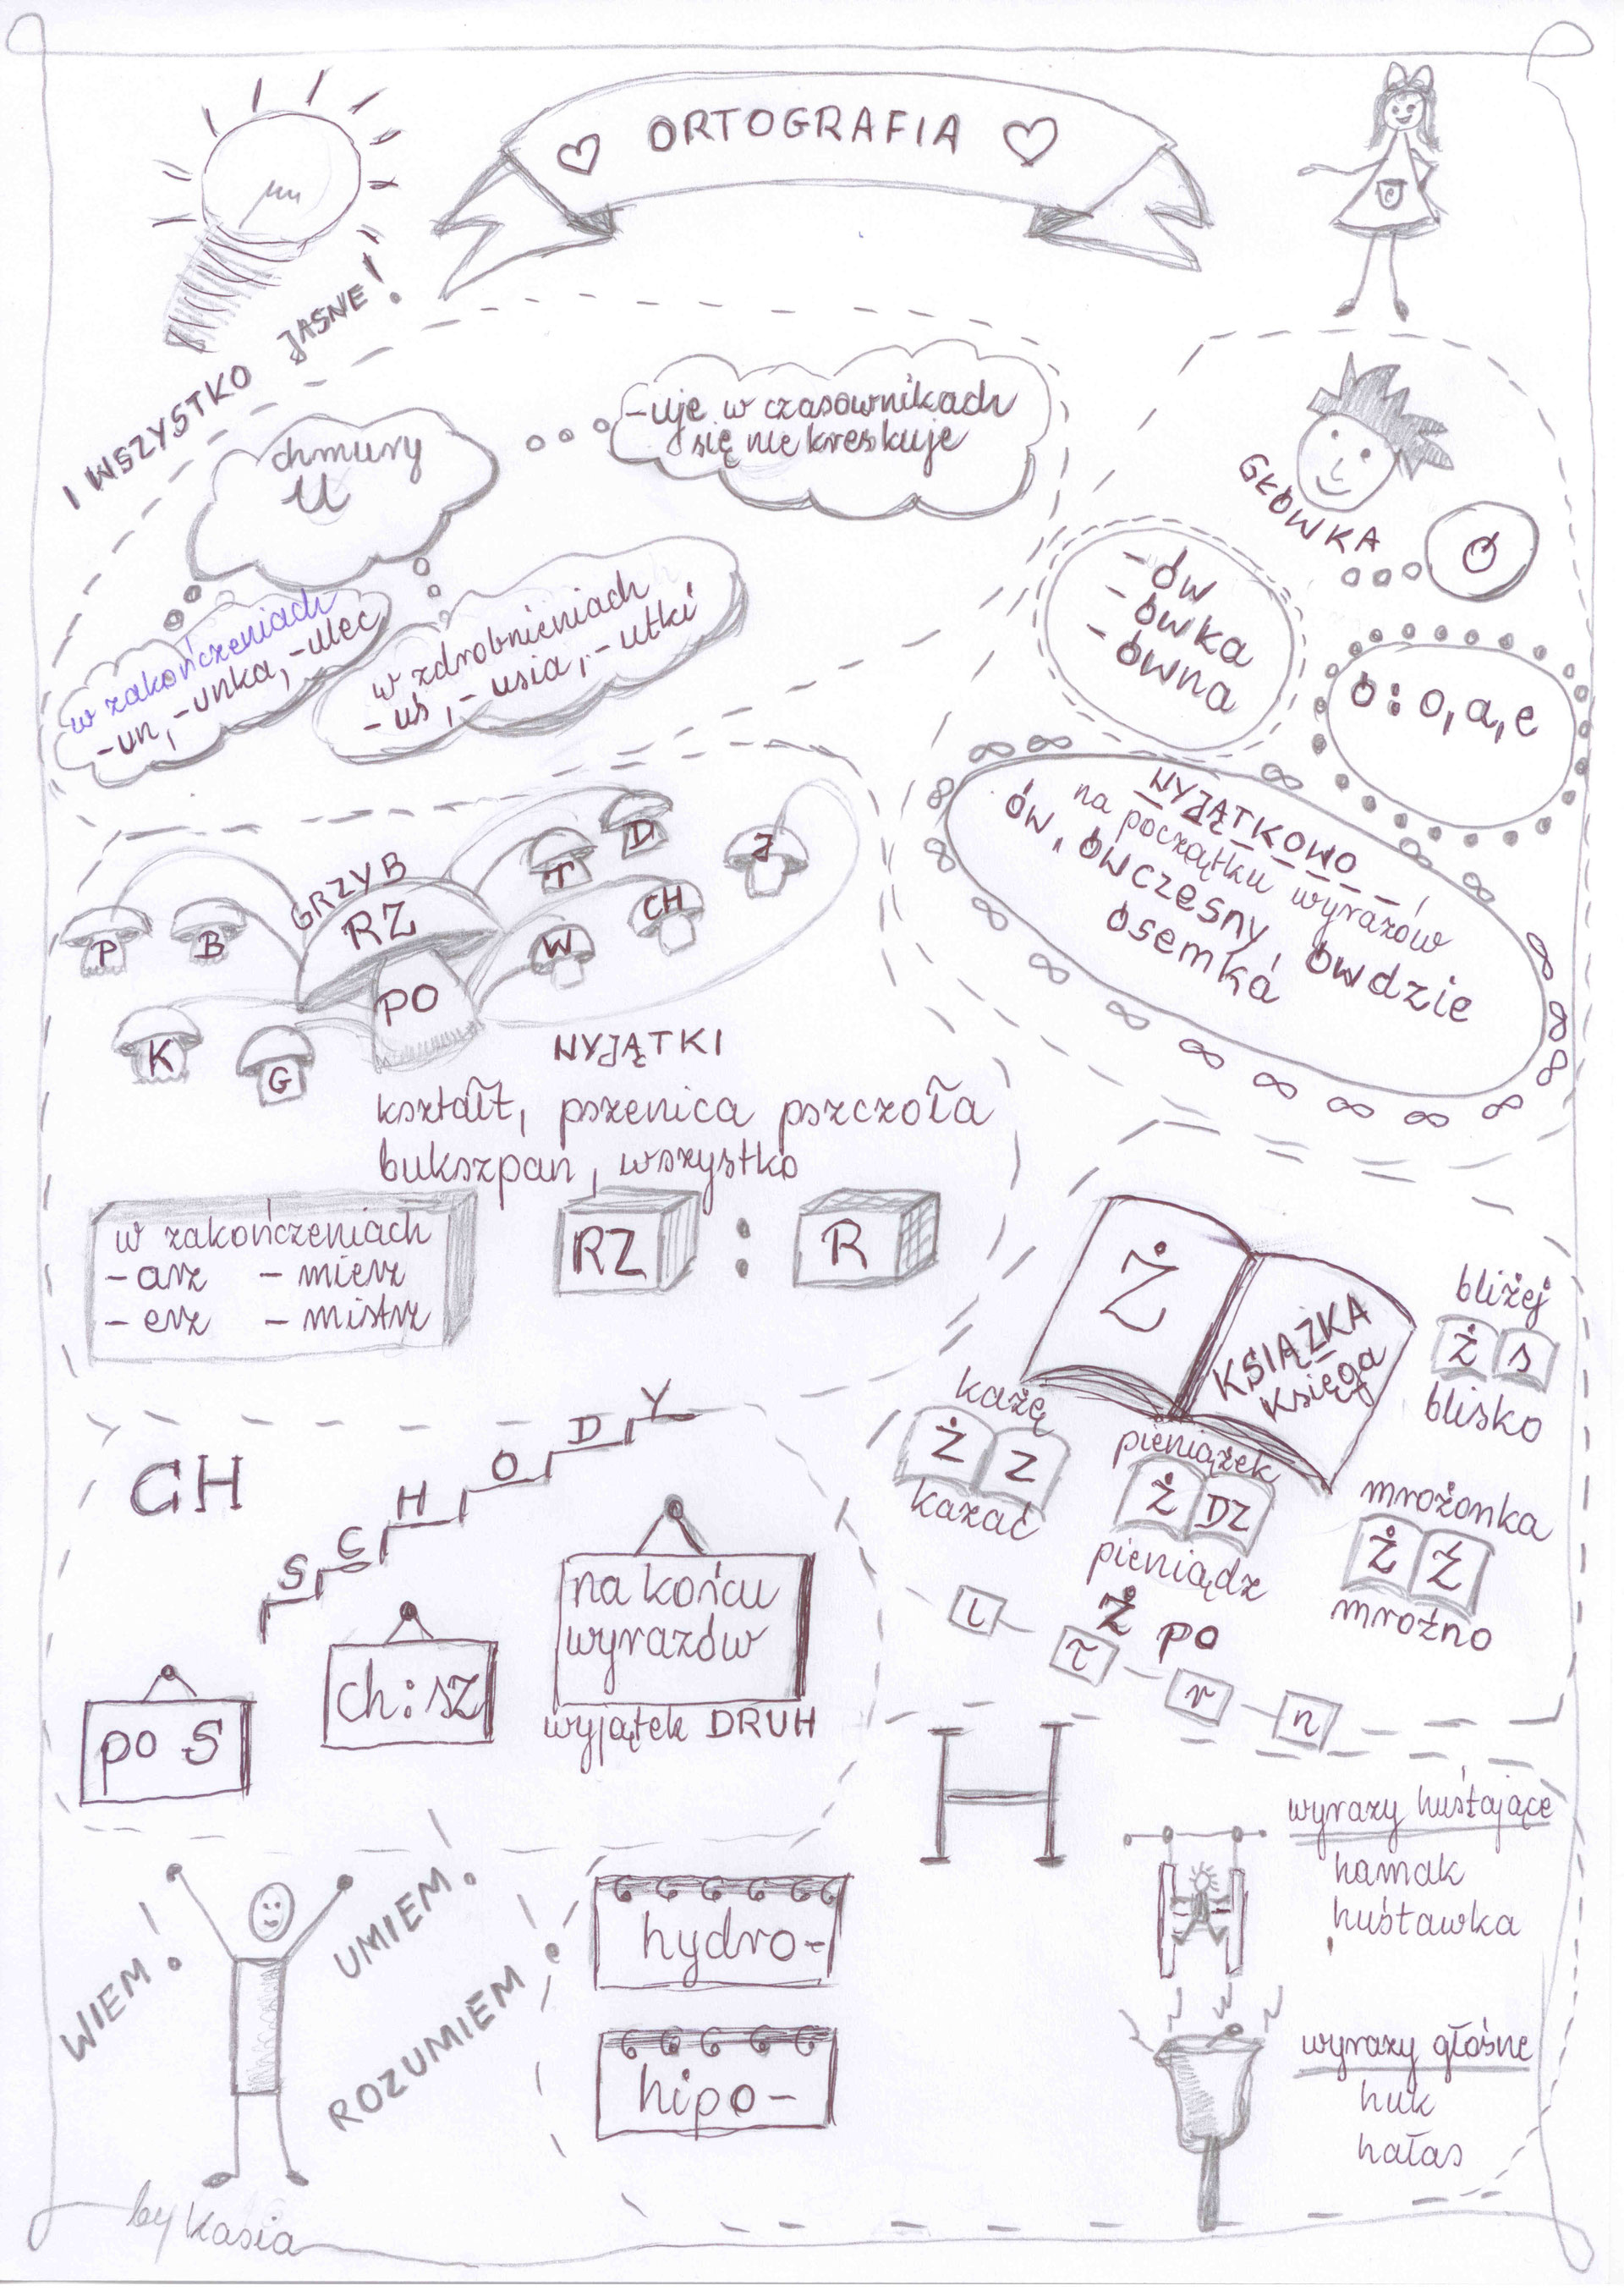 ORTOGRAFIA
I WSZYSTKO JASNE!
chmury
U
-uje w czasownikach
się nie kreskuje
w zakończeniach
-un, -unka, -ulec
w zdrobnieniach
-uś, -usia, -utki
GŁÓWKA
Ó
-ów
-ówka
-ówna
ó : o, a, e
WYJĄTKOWO
na początku wyrazów
ów, ówczesny, ówdzie
ósemka
GRZYB
RZ
PO
P
B
K
G
T
D
J
W
CH
WYJĄTKI
kształt, pszenica pszczoła
bukszpan, wszystko
w zakończeniach
-arz -mierz
-erz -mistrz
RZ : R
Ż
KSIĄŻKA
księga
bliżej
Ż s
blisko
każę
Ż Z
kazać
pieniążek
Ż DZ
pieniądz
mrożonka
Ż Ź
mroźno
Ż po
l
ł
r
n
CH
SCHODY
po S
ch : sz
na końcu
wyrazów
wyjątek DRUH
H
wyrazy huśtające
hamak
huśtawka
wyrazy głośne
huk
hałas
hydro-
hipo-
WIEM!
UMIEM!
ROZUMIEM!
by Kasia